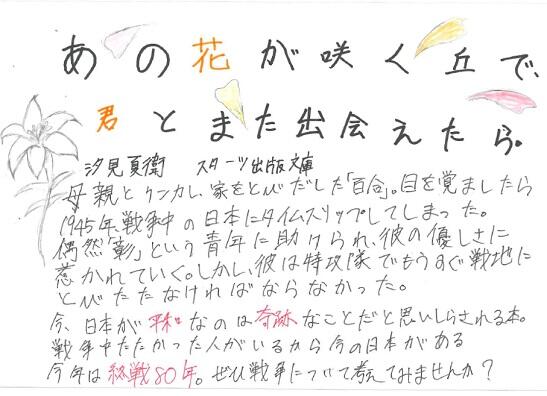 あの花が咲く丘で、
君とまた出会えたら。
汐見夏衛　スターツ出版文庫
母親とケンカし、家をとびだした「百合」。目を覚ましたら
1945年、戦争中の日本にタイムスリップしてしまった。
偶然「彰」という青年に助けられ、彼の優しさに
惹かれていく。しかし、彼は特攻隊でもうすぐ戦地に
とびたたなければならなかった。
今、日本が平和なのは奇跡なことだと思いしらされる本。
戦争中たたかった人がいるから今の日本がある
今年は終戦80年。ぜひ戦争について考えてみませんか？